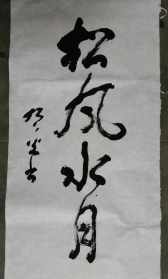 松风水月